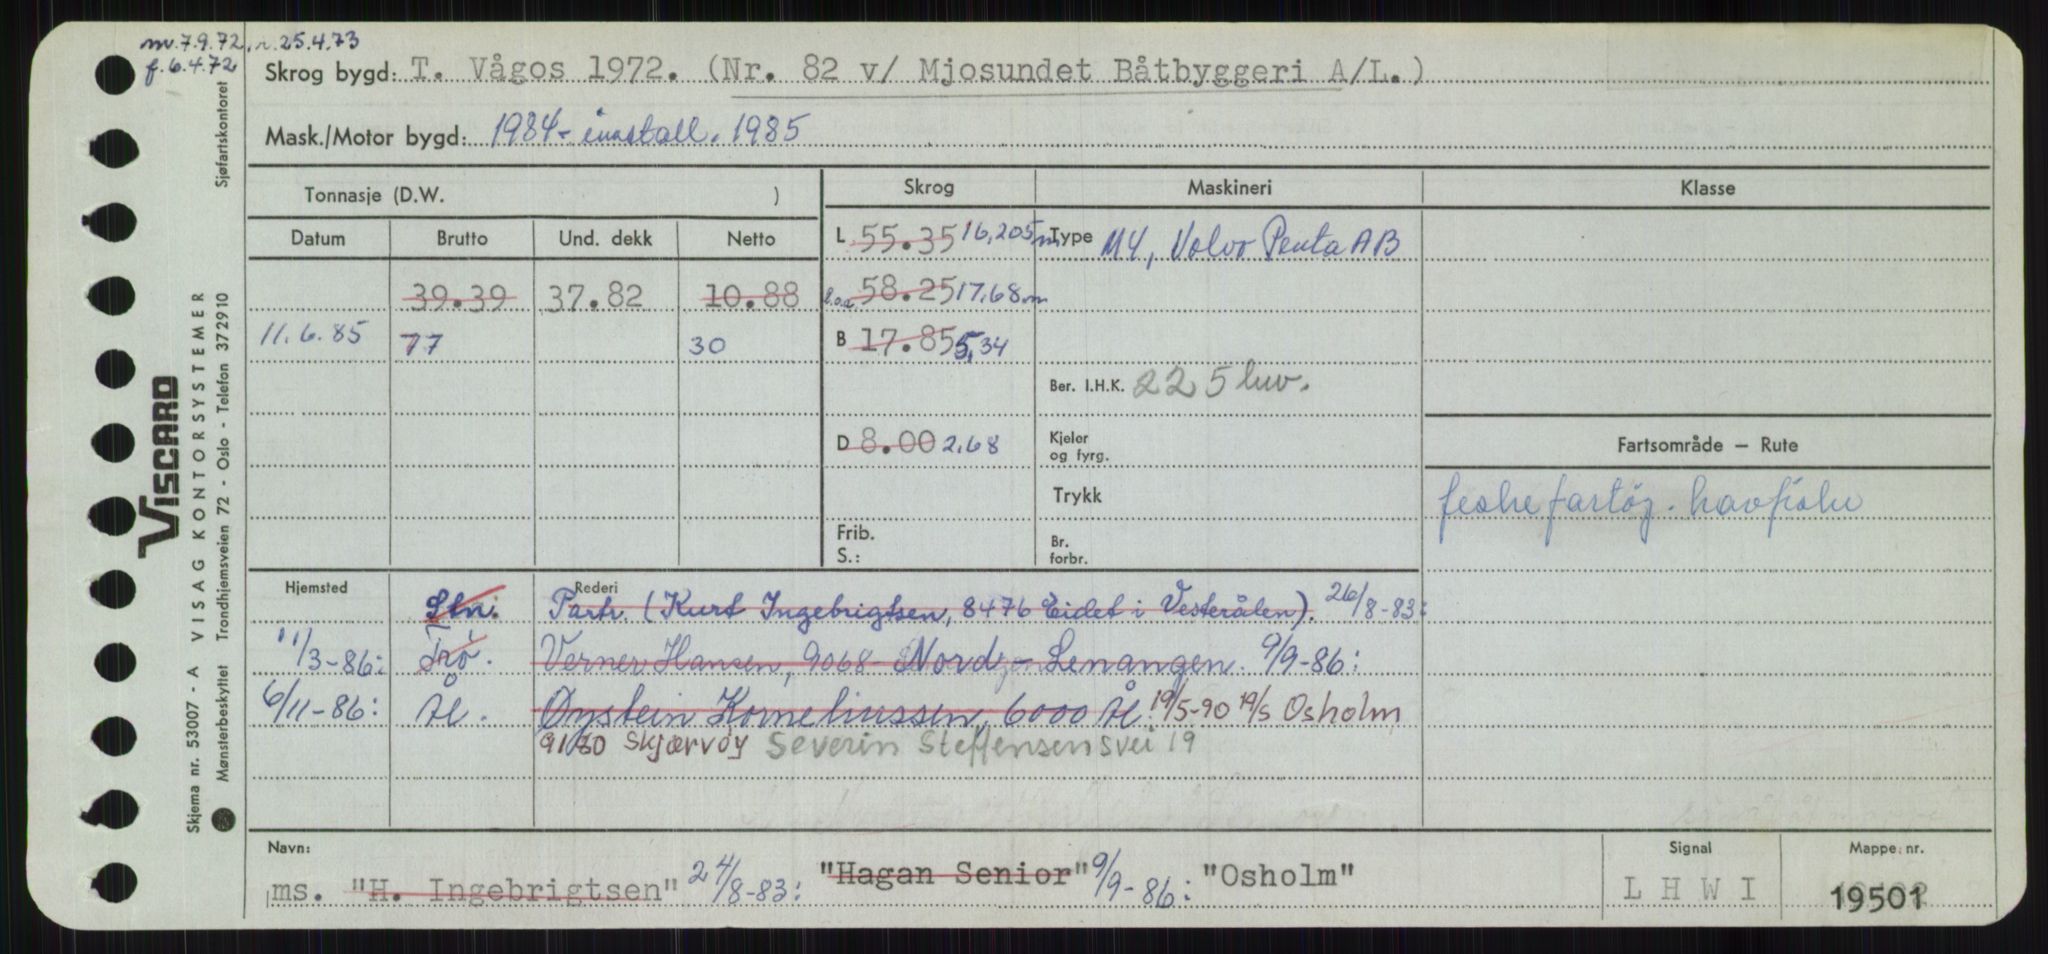 m.7.9.72. n.25.4.73
f.6.4.72
Skrog bygd: T. Vågos 1972. (Nr. 82 v/ Mjosundet Båtbyggeri A/L.)
Mask./Motor bygd: 1984- install. 1985
Tonnasje (D.W. )
Skrog Maskineri Klasse
Datum Brutto Und. dekk Netto
L 55.35 16,205 m Type M4, Volvo Penta AB
39.39 37.82 10.88 l.o.a. 58.25 17,68 m
11.6.85 77 30 B 17.85 5,34
Ber. I.H.K. 225 hw.
D 8.00 2,68 Kjeler og fyrg.
Fartsområde – Rute
Trykk
feskefartöy. havfiske
Frib. S.: Br. forbr.
Hjemsted Rederi
Stn. Partr. (Kurt Ingebrigtsen, 8476 Eidet i Vesterålen). 26/8-83:
11/3-86: Trö. Verner Hansen, 9068 Nord-Lenangen. 9/9-86:
6/11-86: Ål. Øystein Korneliussen, 6000 Ål. 19/5-90 A/S Osholm
9180 Skjærvøy Severin Steffensensvei 19
Navn: Signal Mappe nr.
ms. "H. Ingebrigtsen" 24/8-83: "Hagan Senior" 9/9-86: "Osholm" LHWI 19501
VISCARD
Skjema nr. 53007 - A VISAG KONTORSYSTEMER
Mønsterbeskyttet Trondhjemsveien 72 - Oslo - Telefon 372910 Sjøfartskontoret